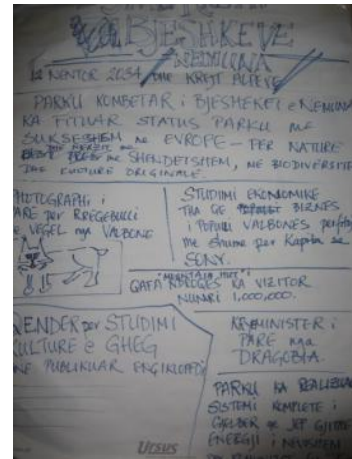 BJESHKEVE
NEMUNA
12 NENTOR 2034 DHE KREJT ALPEVE
PARKU KOMBETAR i BJESHKET e NEMUNA
KA FITUAR STATUS PARKU me
SUKSESSHEM ne EVROPE – PER NATURE
SHENDETSHEM, NE BIODIVERSITE
DHE KULTURE ORIGJINALE.
PHOTOGRAPHI i
PARE per RREGEBULLI
E VEGEL nga VALBONE
STUDIMI EKONOMIKE
THA QE BIZNES
i POPULLI VALBONES
me shume per Kapita se
SONY.
"MOUNTAIN HUT"
QAFA ROROGES KA VIZITOR
NUMRI 1,000,000.
QENDER per STUDIMI
KULTURE e GHEG
NE PUBLIKUAR ENCIKLOPEDI
KRYEMINISTER i
PARE nga
DRAGOBIA.
PARKU KA REALIZUA
SISTEMI KOMPLETE i
GJELBER qe JEP GJITHE
ENERGJI i NEVOJSHEM
URSUS